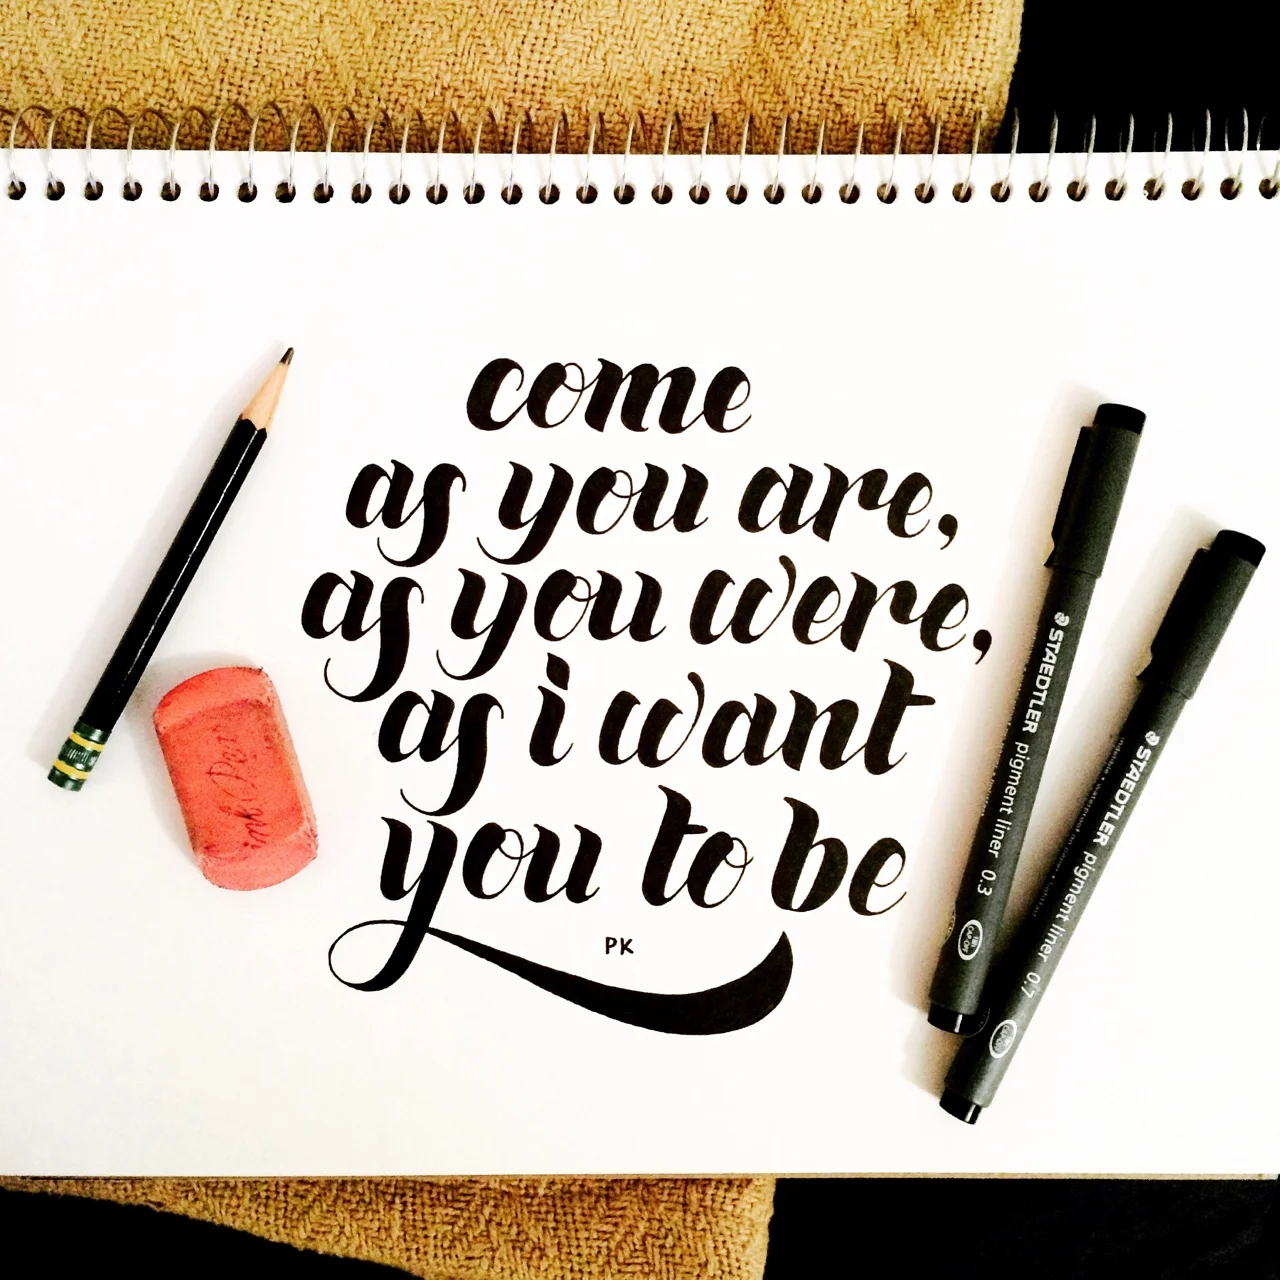 come
as you are,
as you were,
as i want
you to be
PK
STAEDTLER pigment liner 0.3
STAEDTLER pigment liner 0.7